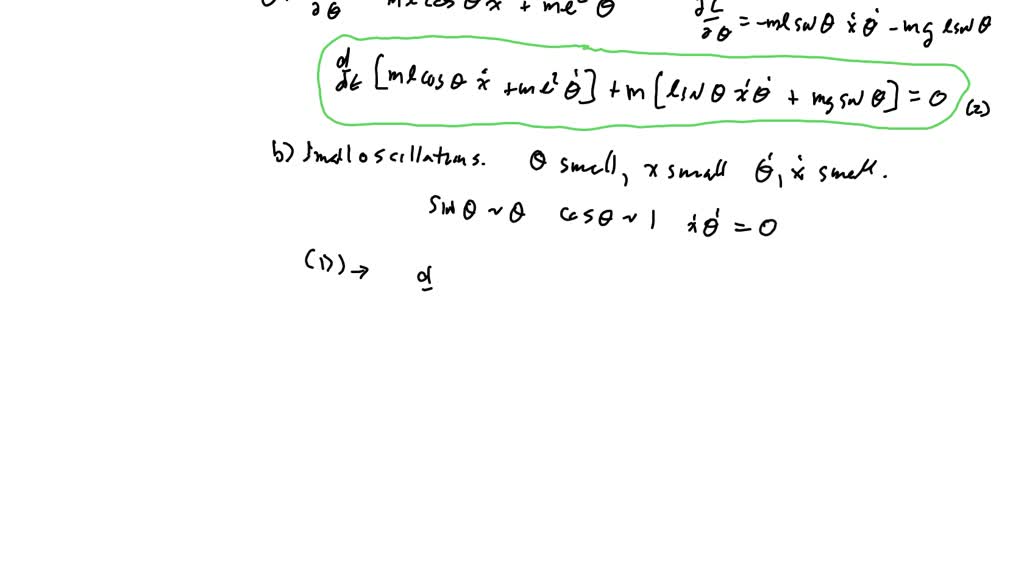 ∂θ̇ mlcosθ ẋ + ml² θ̇
∂L/∂θ = -mlsinθ ẋθ̇ - mg lsinθ
d/dt [mlcosθ ẋ + ml² θ̇] + m [lsinθ ẋθ̇ + mgsinθ] = 0 (2)
b) Small oscillations. θ small, x small θ̇, ẋ small.
sinθ ~ θ cosθ ~ 1 ẋθ̇ = 0
(1) → d